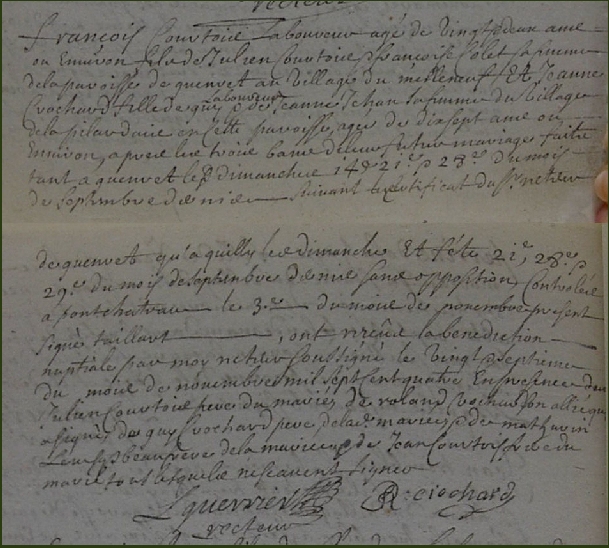 recteur
françois Courtois Laboureur agé de Vingt deux ans
ou Environ fils de Julien Courtois & françoise Solet sa femme
de la paroisse de quenvet au Village du Et Jeanne
Crochard fille de guy laboureur & de Jeanne Jehan sa femme du Village
de la en cette paroisse, agee de dixsept ans ou
Environ, apres les trois bans de leur futur mariage faits
tant a quenvet les dimanches 14e 21e & 28e du mois
de Septembre dernier suivant le Certificat du Sr recteur
de quenvet qu'a quilly les dimanches Et fête 21e, 28e &
29e du mois de Septembre dernier sans opposition, Controlés
a pontchateau le 3e du mois de novembre present
Signé taillart, ont receu la benediction
nuptiale par moy recteur Soussigné le Vingt & Septieme
du mois de novembre mil Sept cent quatre En presence de
Julien Courtois pere du marié, de roland Crochard son allié qui
a signé, de guy Crochard pere de la de mariée, & de mathurin
beaufrere de la mariee & de Jean Courtois frere du
marié tous lesquels ne scavent signer
Lguerrier R: crochard
recteur